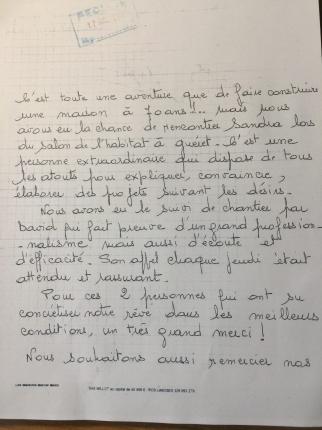 C'est toute une aventure que de faire construire
une maison à 70 ans !!.. mais nous
avons eu la chance de rencontrer Sandra lors
du salon de l'habitat à guéret. C'est une
personne extraordinaire qui dispose de tous
les atouts pour expliquer, convaincre,
élaborer des projets suivant les désirs.
Nous avons eu le suivi de chantier par
David qui fait preuve d'un grand profession-
-nalisme mais aussi d'écoute et
d'efficacité. Son appel chaque jeudi était
attendu et rassurant.
Pour ces 2 personnes qui ont su
concrétiser notre rêve dans les meilleures
conditions, un très grand merci !
Nous souhaitons aussi remercier nos